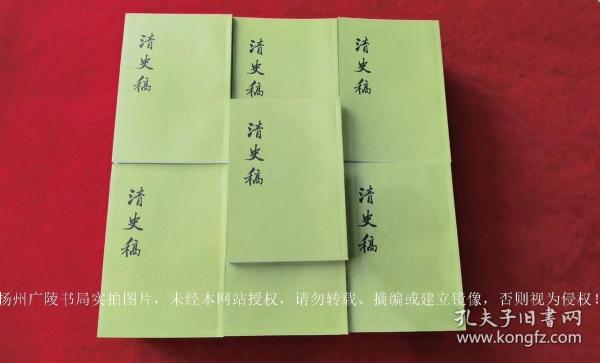 清史稿
清史稿
清史稿
清史稿
清史稿
清史稿
扬州广陵书局实拍图片，未经本网站授权，请勿转载、摘编或建立镜像，否则视为侵权！
孔夫子旧书网
www.kongfz.com